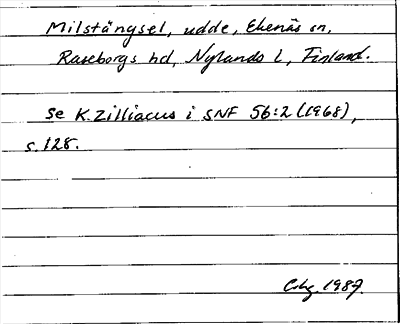 Milstängsel, udde, Ekenäs sn,
Raseborgs hd, Nylands l, Finland.
Se K. Zilliacus i SNF 56:2 (1968),
s. 128.
1987.